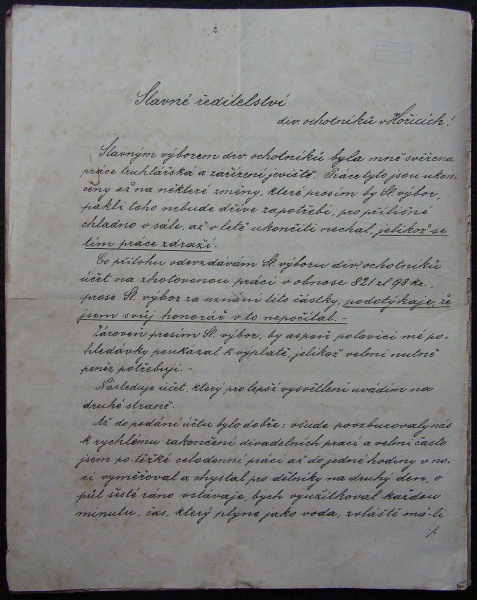 2
Slavné ředitelství
div. ochotníků v Hořicích!
Slavným výborem div. ochotníků byla mně svěřena
práce truhlářska a zařízení jeviště. Práce tyto jsou ukon-
čeny až na některé změny, které prosím by Sl. výbor,
pakli toho nebude dříve zapotřebí, pro přílišné
chladno v sále, až v letě ukončiti nechal, jelikož se
tím práce zdraží.
Co přílohu odevzdávám Sl. výboru div. ochotníků
účet na zhotovenou práci v obnose 821 zl 98 kr.,
prose Sl. výbor za uznání této částky, podotýkaje, že
jsem svůj honorář v to nepočítal. -
Zároveň prosím Sl. výbor, by aspoň polovici mé po-
hledávky poukázal k výplatě, jelikož velmi nutně
peněz potřebuji. -
Následuje účet, který pro lepší vysvětlení uvádím na
druhé straně.
Až do podání účtu bylo dobře; všude povzbuzovaly nás
k rychlému zakončení divadelních prací a velmi často
jsem po těžké celodenní práci až do jedné hodiny v no-
ci vyměřoval a chystal pro dělníky na druhý den, o
půl šesté ráno vstávaje, bych využitkoval každou
minutu, čas, který plyne jako voda, zvláště má-li
./.